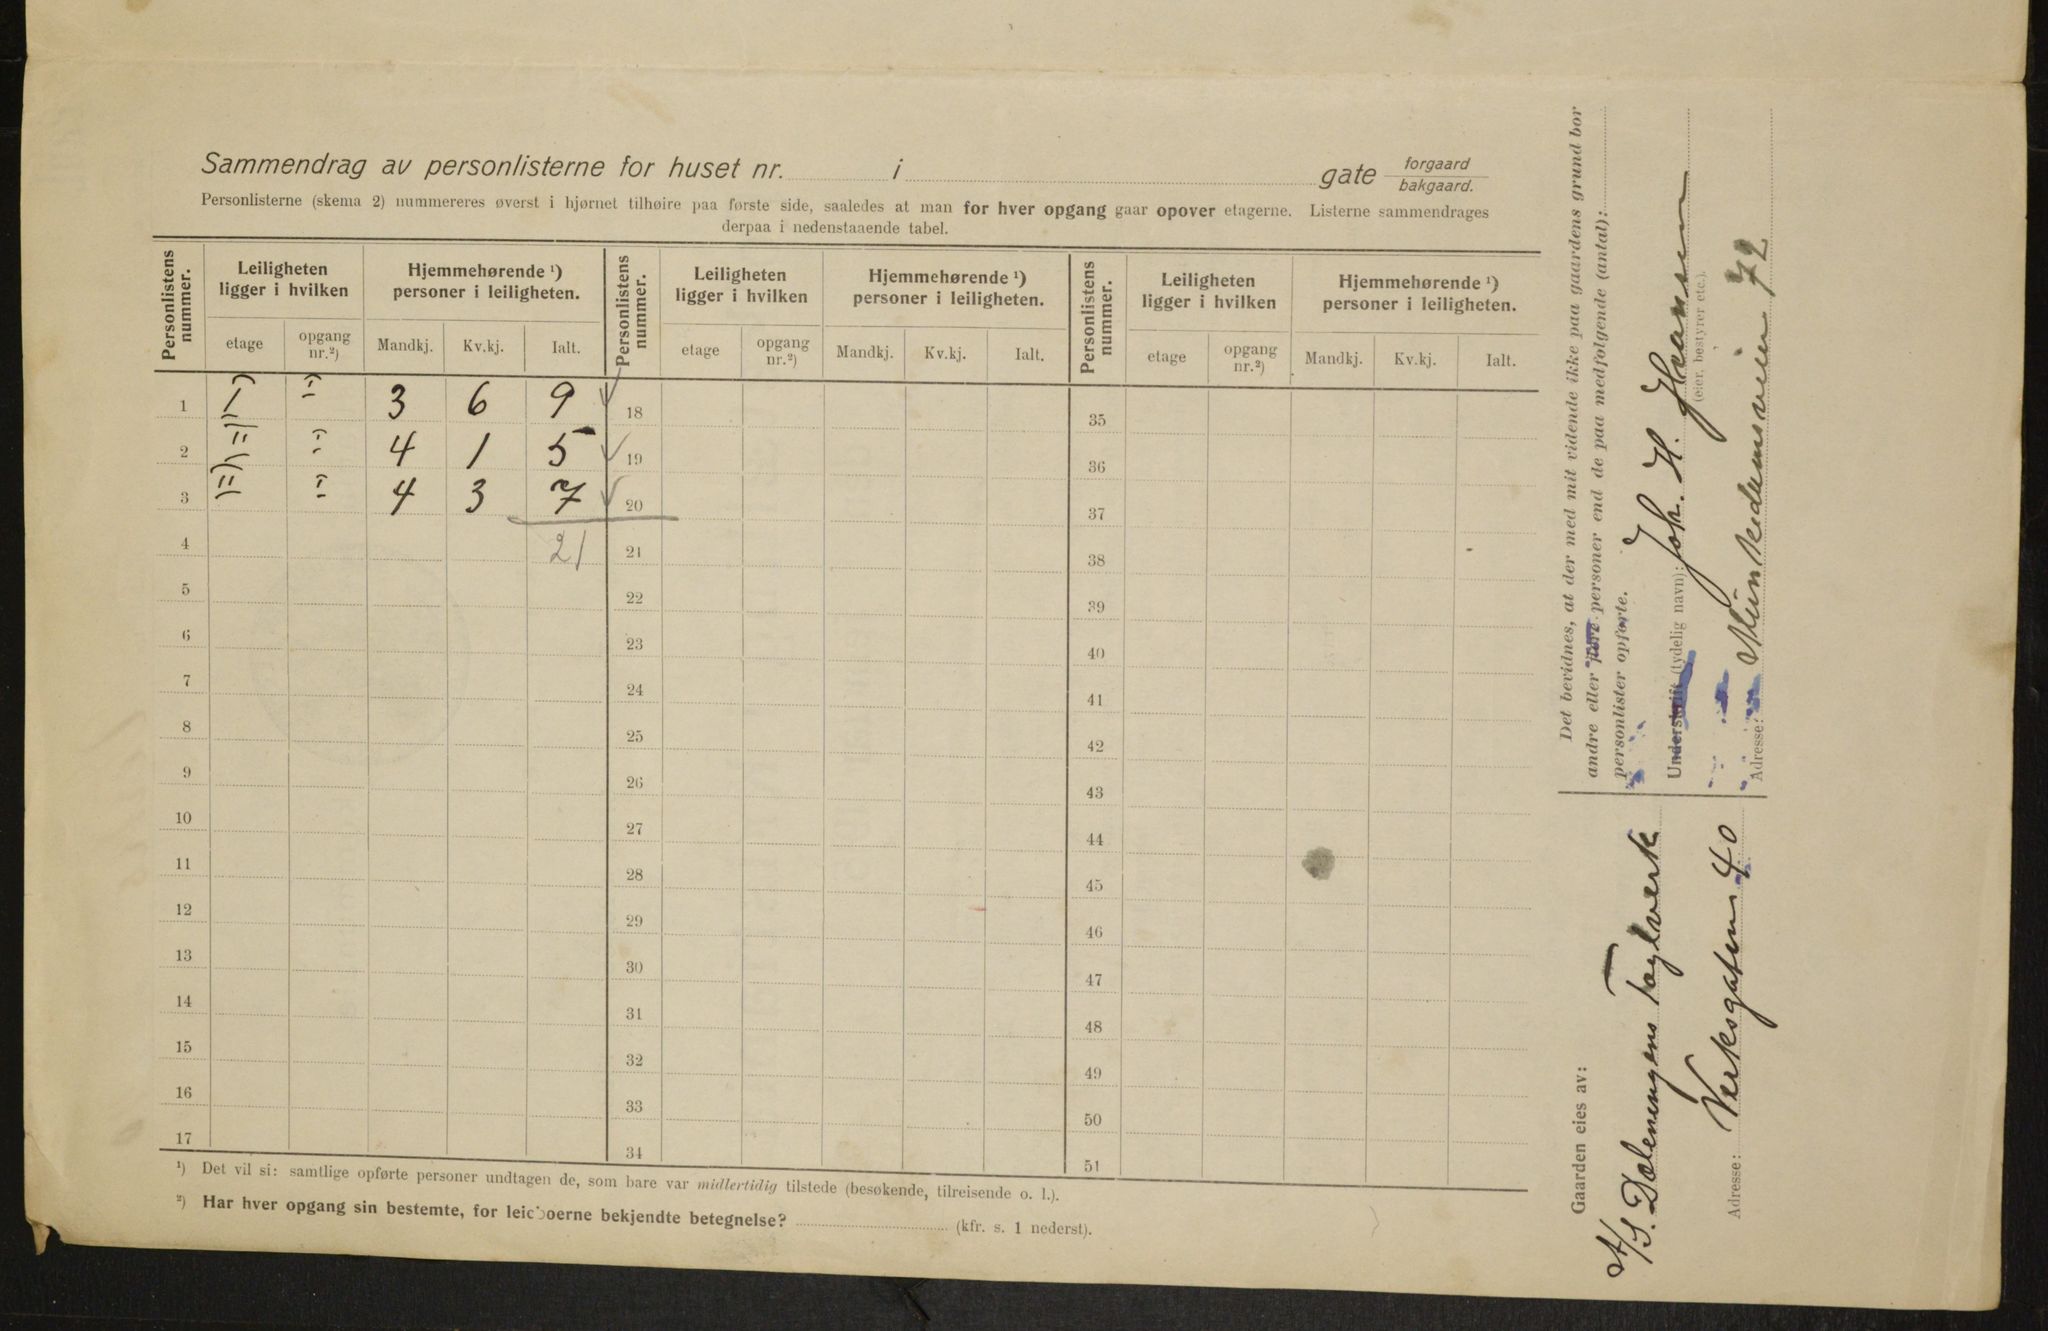 Sammendrag av personlisterne for huset nr. i gate forgaard bakgaard.
Personlisterne (skema 2) nummereres øverst i hjørnet tilhøire paa første side, saaledes at man for hver opgang gaar opover etagerne. Listerne sammendrages
derpaa i nedenstaaende tabel.
Personlistens nummer. Leiligheten ligger i hvilken Hjemmehørende ¹) personer i leiligheten. Personlistens nummer. Leiligheten ligger i hvilken Hjemmehørende ¹) personer i leiligheten. Personlistens nummer. Leiligheten ligger i hvilken Hjemmehørende ¹) personer i leiligheten.
etage opgang nr.²) Mandkj. Kv.kj. Ialt. etage opgang nr.²) Mandkj. Kv.kj. Ialt. etage opgang nr.²) Mandkj. Kv.kj. Ialt.
1 3 6 9 18 35
2 4 1 5 19 36
3 4 3 7 20 37
4 21 21 38
5 22 39
6 23 40
7 24 41
8 25 42
9 26 43
10 27 44
11 28 45
12 29 46
13 30 47
14 31 48
15 32 49
16 33 50
17 34 51
¹) Det vil si: samtlige opførte personer undtagen de, som bare var midlertidig tilstede (besøkende, tilreisende o. l.).
²) Har hver opgang sin bestemte, for leieboerne bekjendte betegnelse? (kfr. s. 1 nederst).
Det bevidnes, at der med mit vidende ikke paa gaardens grund bor
andre eller flere personer end de paa medfølgende (antal):
personlister opførte.
Underskrift (tydelig navn): Joh. H. Haansen
(eier, bestyrer etc.).
Adresse: Munkedamsveien 72
Gaarden eies av:
A/S. Dælenengens Teglverk
Adresse: Verksgaten 40